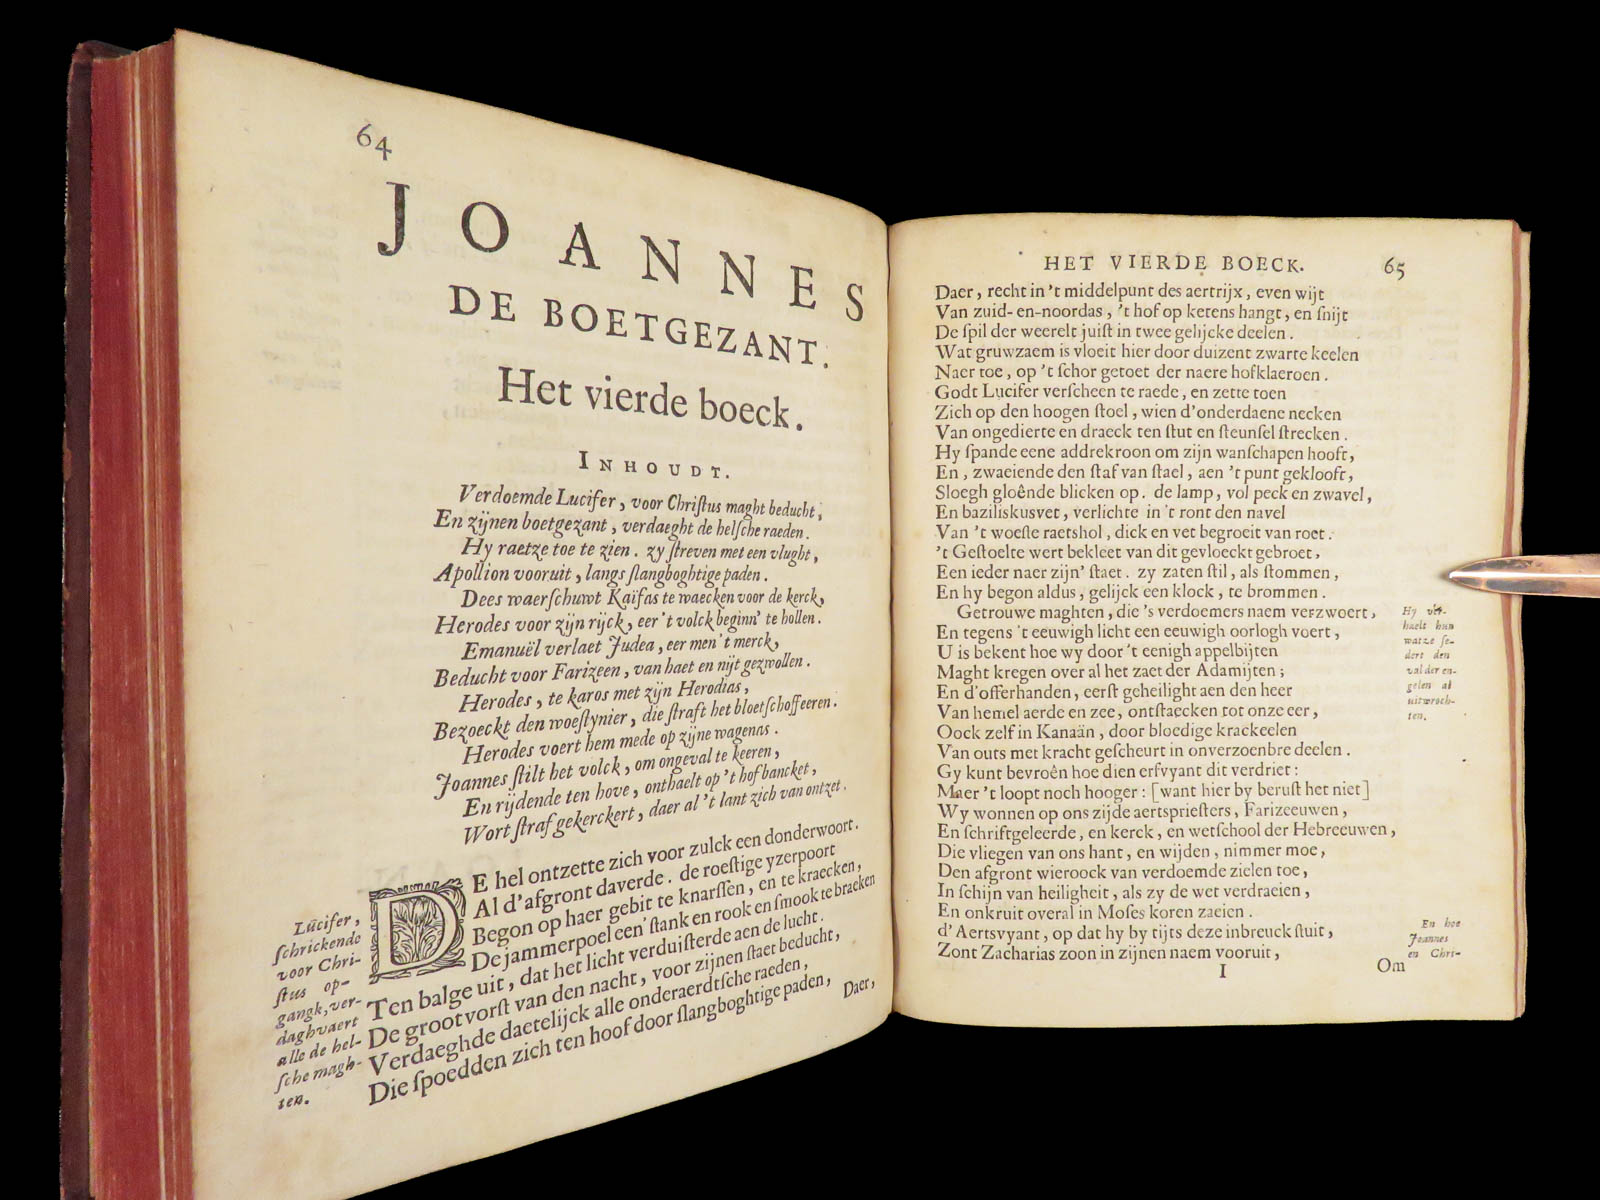 64
JOANNES
DE BOETGEZANT.
Het vierde boeck.
INHOUDT.
Verdoemde Lucifer, voor Chriſtus maght beducht,
En zijnen boetgezant, verdaeght de helſche raeden.
Hy raetze toe te zien. zy ſtreven met een vlught,
Apollion vooruit, langs ſlangboghtige paden.
Dees waerſchuwt Kaïfas te waecken voor de kerck,
Herodes voor zijn rijck, eer 't volck beginn' te hollen.
Emanuël verlaet Judea, eer men 't merck,
Beducht voor Farizeen, van haet en nijt gezwollen.
Herodes, te karos met zijn Herodias,
Bezoeckt den woeſtynier, die ſtraft het bloetſchoffeeren.
Herodes voert hem mede op zijne wagenas.
Joannes ſtilt het volck, om ongeval te keeren,
En rijdende ten hove, onthaelt op 't hofbancket,
Wort ſtraf gekerckert, daer al 't lant zich van ontzet.
DE hel ontzette zich voor zulck een donderwoort.
Al d'afgront daverde. de roeſtige yzerpoort
Begon op haer gebit te knarſſen, en te kraecken,
De jammerpoel een' ſtank en rook en ſmook te braeken
Ten balge uit, dat het licht verduiſterde aen de lucht.
De grootvorſt van den nacht, voor zijnen ſtaet beducht,
Verdaeghde daetelijck alle onderaerdtſche raeden,
Die ſpoedden zich ten hoof door ſlangboghtige paden,
Daer,
Lucifer,
ſchrickende
voor Chri-
ſtus op-
gangk, ver-
daghvaert
alle de hel-
ſche magh-
ten.
HET VIERDE BOECK. 65
Daer, recht in 't middelpunt des aertrijx, even wijt
Van zuid- en-noordas, 't hof op ketens hangt, en ſnijt
De ſpil der weerelt juiſt in twee gelijcke deelen.
Wat gruwzaem is vloeit hier door duizent zwarte keelen
Naer toe, op 't ſchor getoet der naere hofklaeroen.
Godt Lucifer verſcheen te raede, en zette toen
Zich op den hoogen ſtoel, wien d'onderdaene necken
Van ongedierte en draeck ten ſtut en ſteunſel ſtrecken.
Hy ſpande eene addrekroon om zijn wanſchapen hooft,
En, zwaeiende den ſtaf van ſtael, aen 't punt geklooft,
Sloegh gloênde blicken op. de lamp, vol peck en zwavel,
En baziliskusvet, verlichte in 't ront den navel
Van 't woeſte raetshol, dick en vet begroeit van roet.
't Geſtoelte wert bekleet van dit gevloeckt gebroet,
Een ieder naer zijn' ſtaet. zy zaten ſtil, als ſtommen,
En hy begon aldus, gelijck een klock, te brommen.
Getrouwe maghten, die 's verdoemers naem verzwoert,
En tegens 't eeuwigh licht een eeuwigh oorlogh voert,
U is bekent hoe wy door 't eenigh appelbijten
Maght kregen over al het zaet der Adamijten;
En d'offerhanden, eerſt geheilight aen den heer
Van hemel aerde en zee, ontſtaecken tot onze eer,
Oock zelf in Kanaän, door bloedige krackeelen
Van outs met kracht geſcheurt in onverzoenbre deelen.
Gy kunt bevroên hoe dien erfvyant dit verdriet:
Maer 't loopt noch hooger: [want hier by beruſt het niet]
Wy wonnen op ons zijde aertsprieſters, Farizeeuwen,
En ſchriftgeleerde, en kerck, en wetſchool der Hebreeuwen,
Die vliegen van ons hant, en wijden, nimmer moe,
Den afgront wieroock van verdoemde zielen toe,
In ſchijn van heiligheit, als zy de wet verdraeien,
En onkruit overal in Moſes koren zaeien.
d'Aertsvyant, op dat hy by tijts deze inbreuck ſtuit,
Zont Zacharias zoon in zijnen naem vooruit,
I
Om
Hy ver-
haelt hun
watze ſe-
dert den
val der en-
gelen al
uitwroch-
ten.
En hoe
Joannes
en Chri-